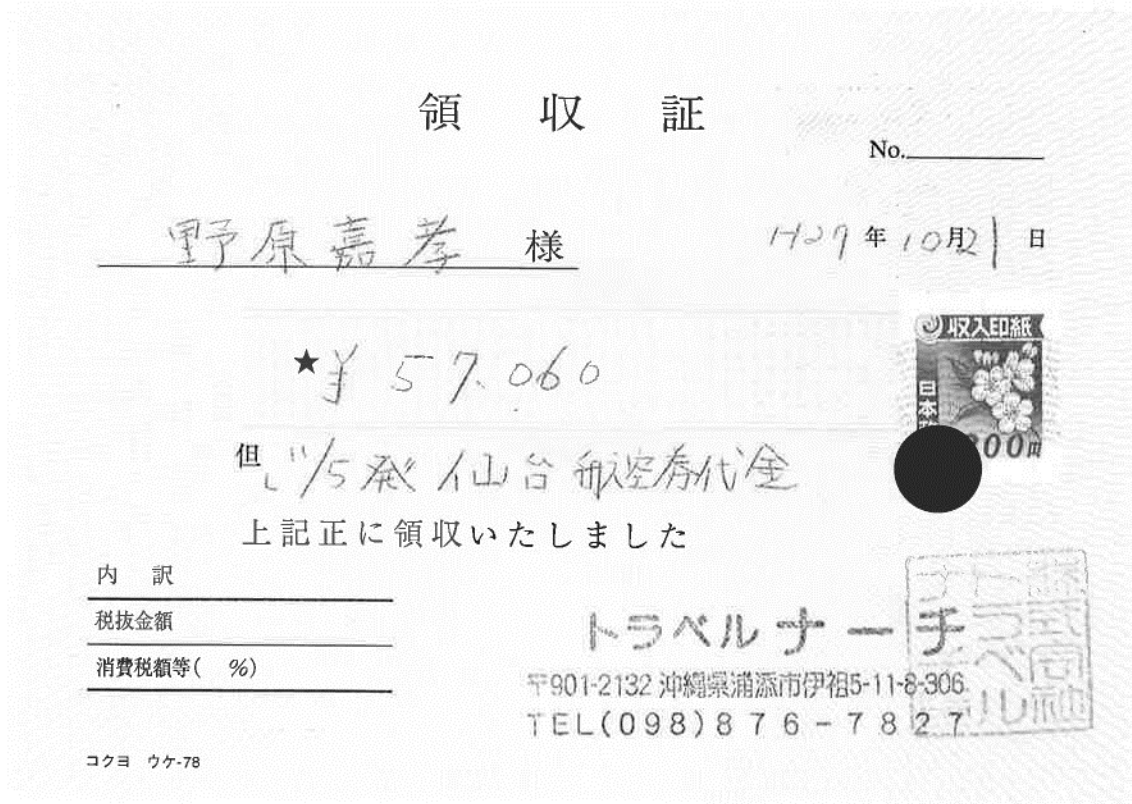 領収証
No.
野原嘉孝 様
H27年10月21日
収入印紙
日本
200円
★¥57.060
但 11/5発 仙台 航空券代金
上記正に領収いたしました
内訳
税抜金額
消費税額等( %)
トラベルナーチ
〒901-2132 沖縄県浦添市伊祖5-11-8-306
TEL(098)876-7827
株式会社
トラベル
コクヨ ウケ-78